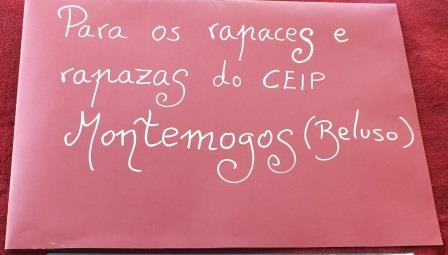 Para os rapaces e
rapazas do CEIP
Montemogos (Beluso)